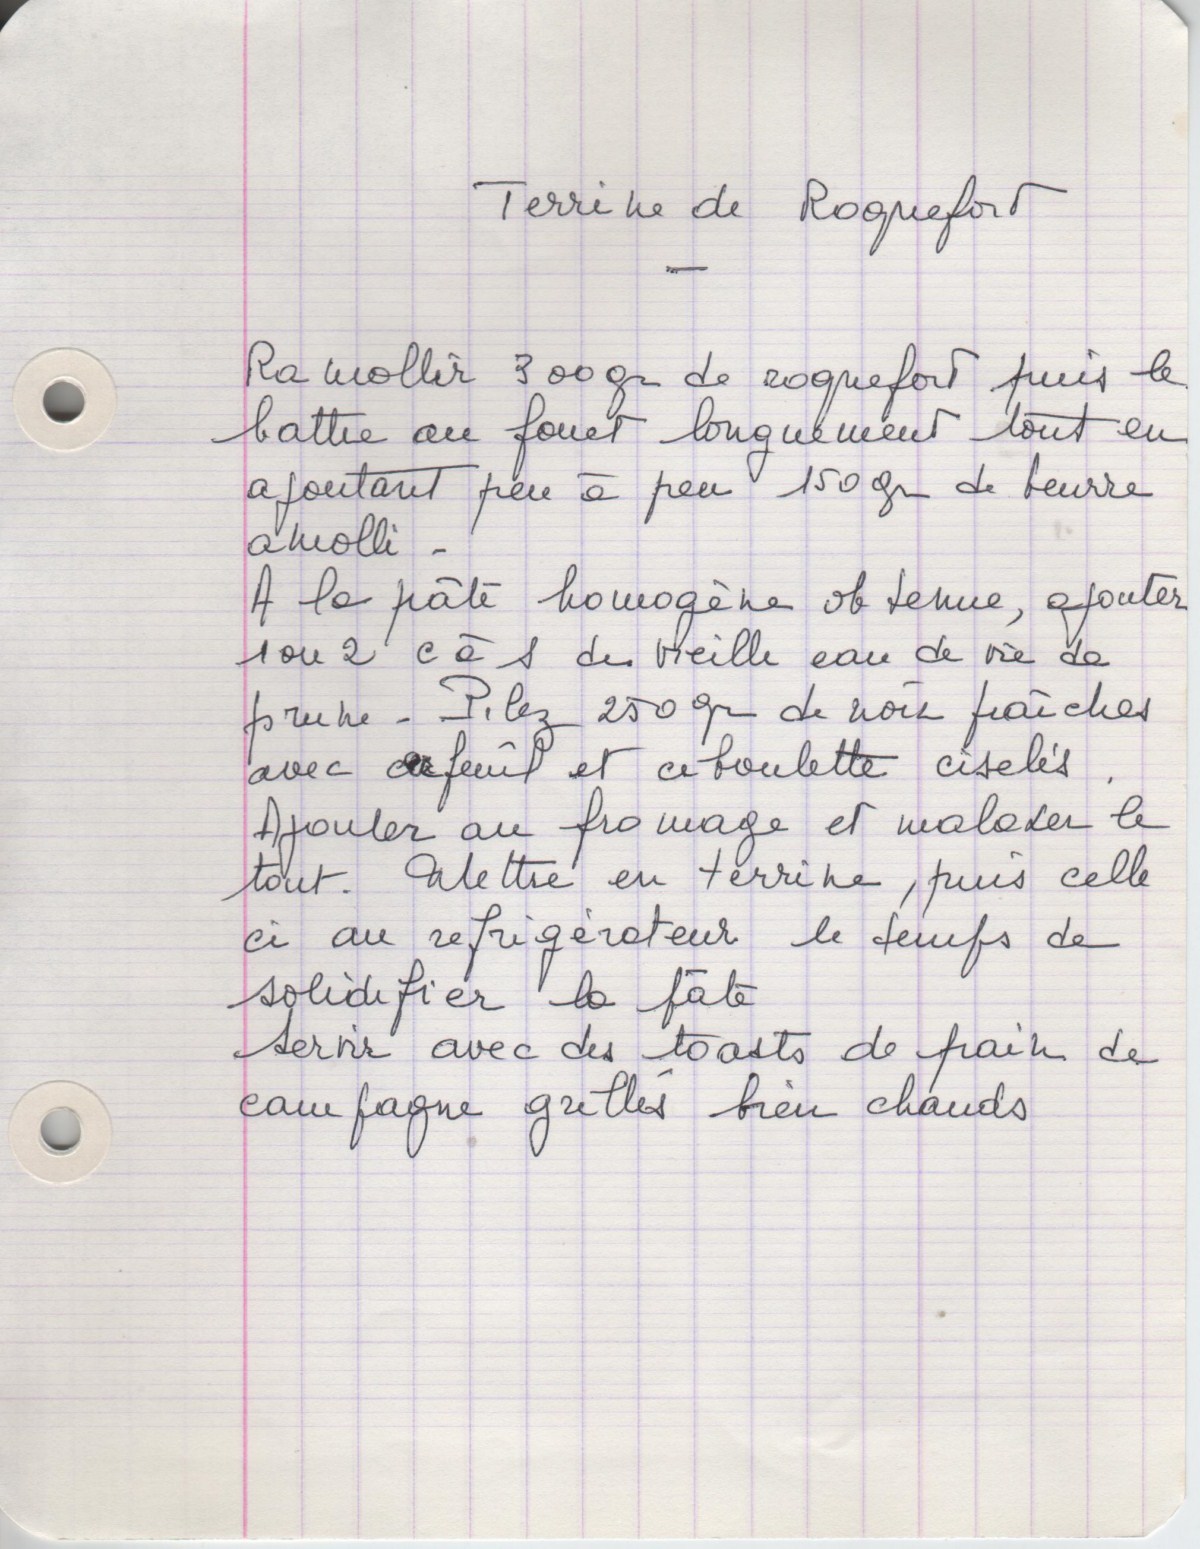 Terrine de Roquefort
—
Ramollir 300gr de roquefort puis le
battre au fouet longuement tout en
ajoutant peu à peu 150gr de beurre
amolli -
A la pâte homogène obtenue, ajouter
1 ou 2 c à s de vieille eau de vie de
prune - Pilez 250gr de noix fraîches
avec cerfeuil et ciboulette ciselés.
Ajouter au fromage et malaxer le
tout. Mettre en terrine, puis celle
ci au refrigérateur le temps de
solidifier la pâte
servir avec des toasts de pain de
campagne grillés bien chauds